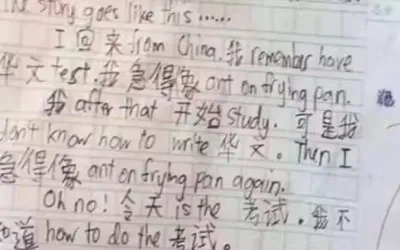 The story goes like this......
I 回来 from China. 我 remember have
华文 test. 我急得像 ant on frying pan.
我 after that 开始 study. 可是我
don't know how to write 华文。Then I
急得像 ant on frying pan again.
Oh no! 今天 is the 考试. 我不
知道 how to do the 考试。